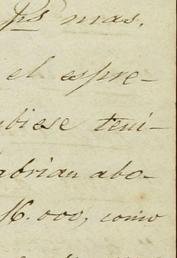 ps mas.
el espre-
ubiese teni-
abrian abo-
16.000, como